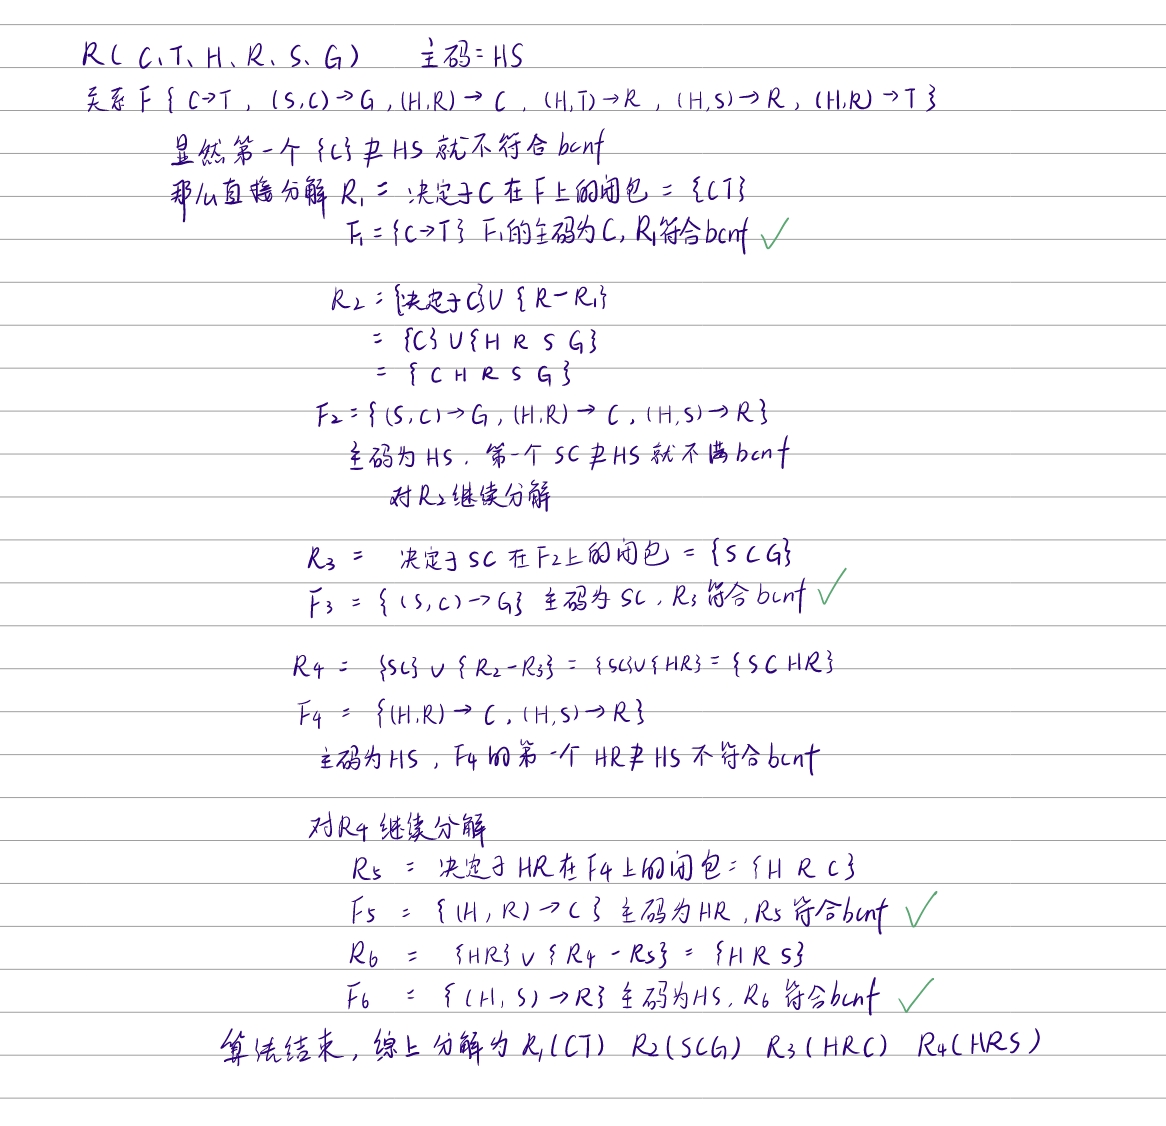 R( C、T、H、R、S、G) 主码=HS
关系 F { C→T , (S,C)→G , (H,R)→ C , (H,T)→R , (H,S)→R , (H,R)→T }
显然第一个 {C} ⊉ HS 就不符合 bcnf
那么直接分解 R₁ = 决定子C 在 F 上的闭包 = {CT}
F₁ = {C→T} F₁的主码为C, R₁符合bcnf ✓
R₂ = {决定子C}∪{R-R₁}
= {C}∪{H R S G}
= { C H R S G }
F₂={(S,C)→G , (H,R)→ C , (H,S)→R}
主码为 HS , 第一个 SC ⊉ HS 就不满bcnf
对R₂继续分解
R₃ = 决定子SC 在 F₂上的闭包 = {S C G}
F₃ = { (S,C)→G} 主码为 SC , R₃ 符合 bcnf ✓
R₄ = {SC} ∪ { R₂-R₃} = {SC}∪{HR} = {S C H R}
F₄ = {(H,R)→ C , (H,S)→R}
主码为HS , F₄ 的第一个 HR ⊉ HS 不符合bcnf
对R₄ 继续分解
R₅ = 决定子 HR 在 F₄ 上的闭包 = {H R C}
F₅ = { (H, R)→C } 主码为HR , R₅ 符合bcnf ✓
R₆ = {HR} ∪ { R₄ - R₅} = {H R S}
F₆ = { (H, S)→R} 主码为HS, R₆ 符合bcnf ✓
算法结束, 综上 分解为 R₁(CT) R₂(SCG) R₃(HRC) R₄(HRS)